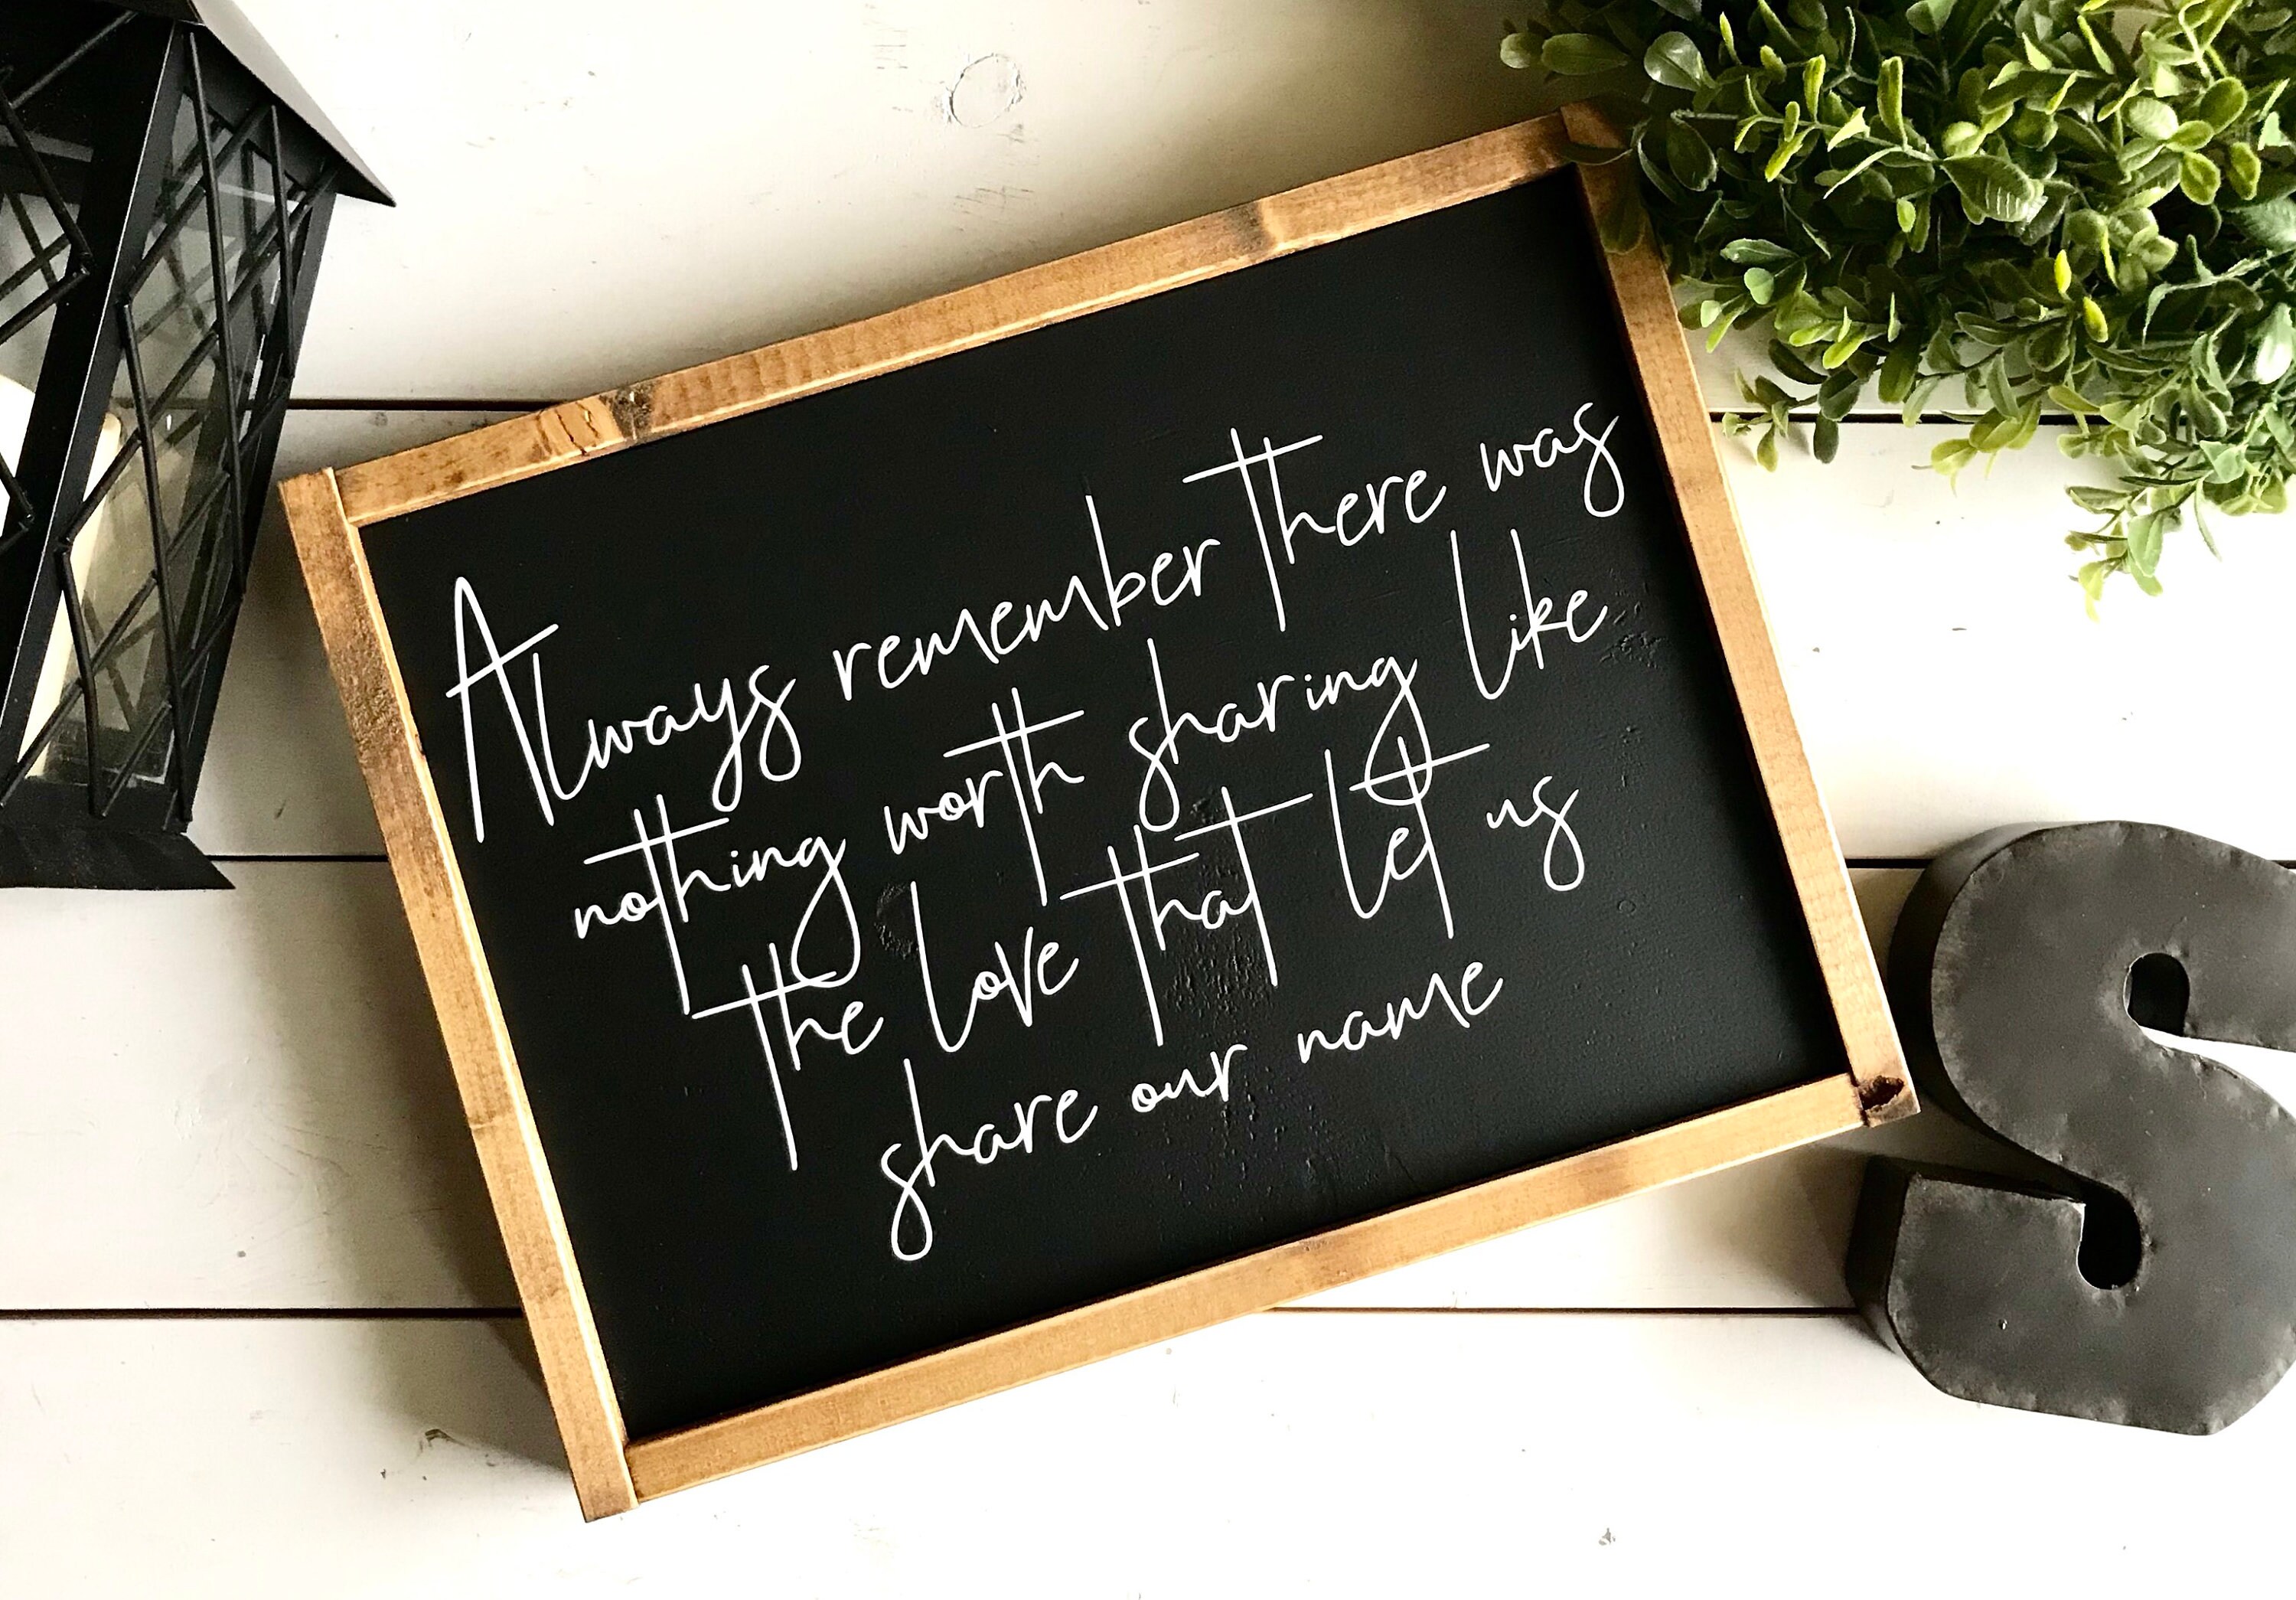 Always remember there was
nothing worth sharing like
the love that let us
share our name
S